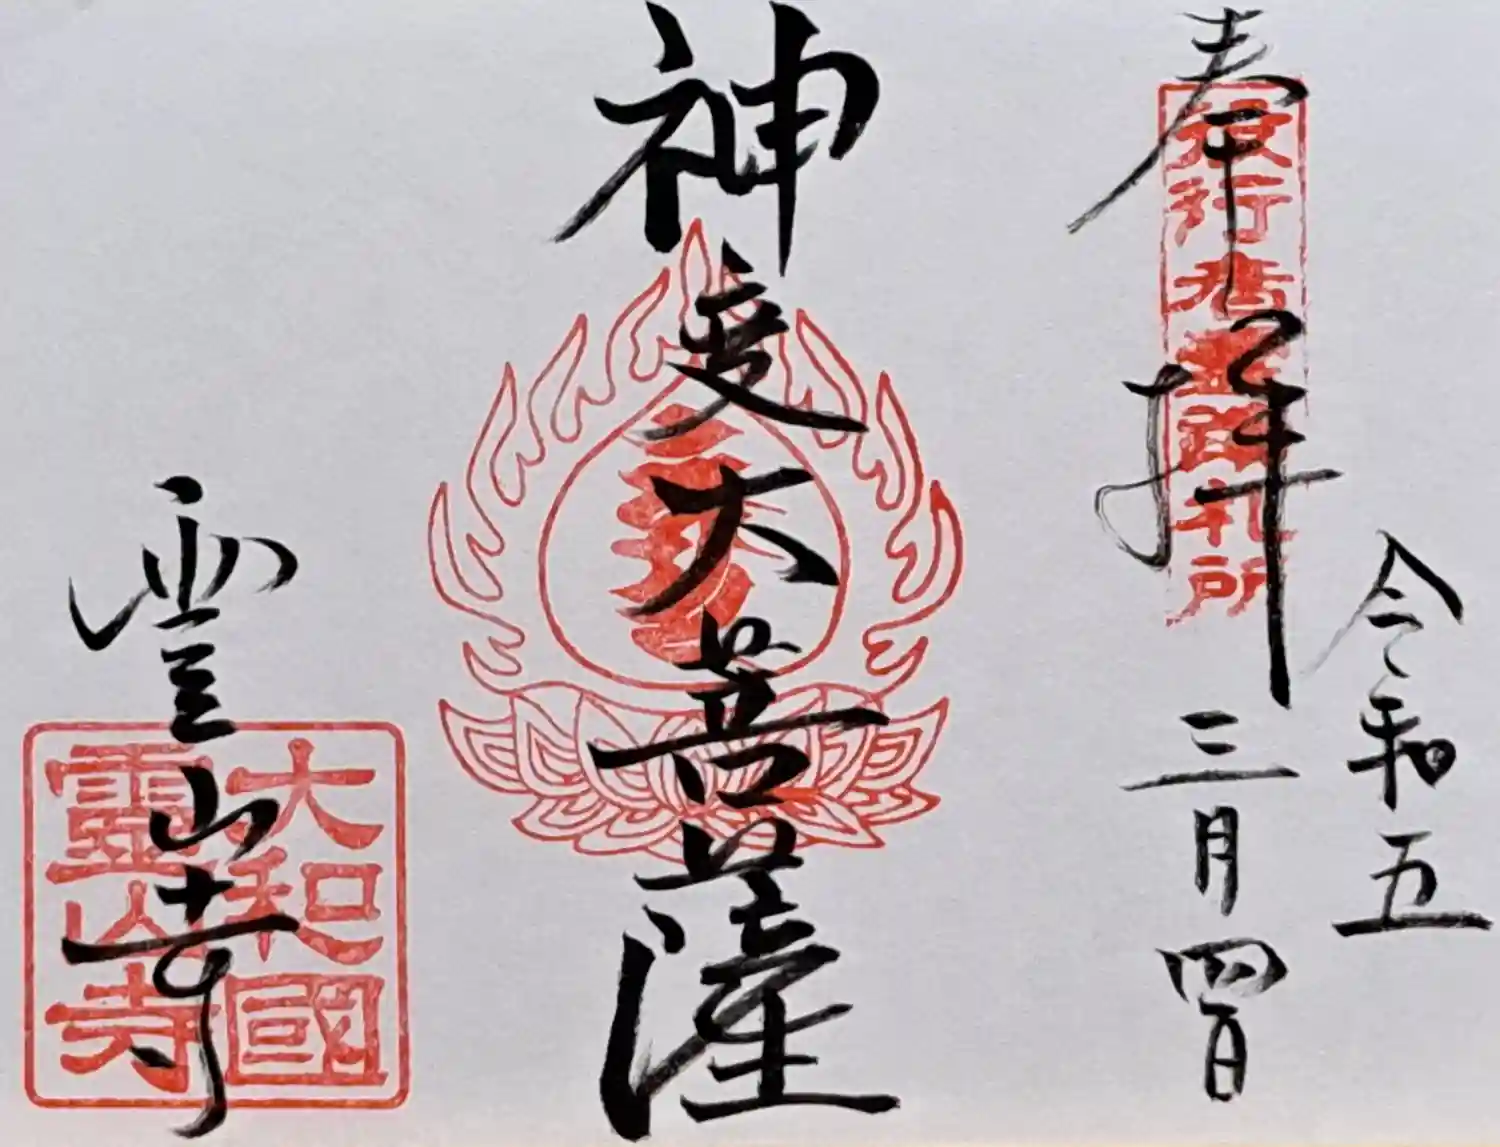 奉拝
役行者霊蹟札所
令和五
三月四日
神変大菩薩
霊山寺
大和國
霊山寺